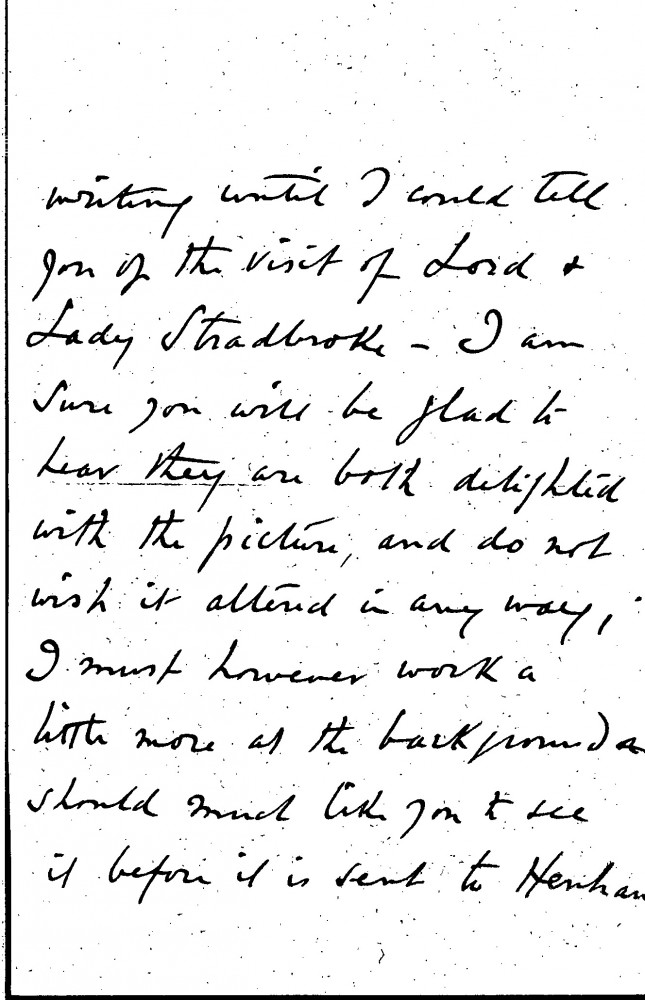 writing until I could tell
you of the visit of Lord &
Lady Stradbroke - I am
sure you will be glad to
hear they are both delighted
with the picture, and do not
wish it altered in any way,
I must however work a
little more at the background &
should much like you to see
it before it is sent to Henham